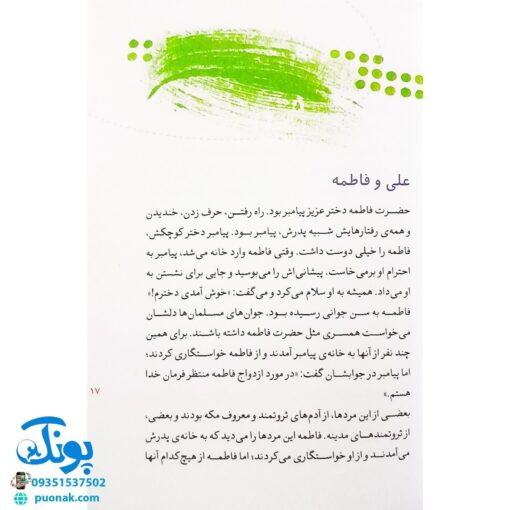 علی و فاطمه
حضرت فاطمه دختر عزیز پیامبر بود. راه رفتن، حرف زدن، خندیدن
و همه‌ی رفتارهایش شبیه پدرش، پیامبر بود. پیامبر دختر کوچکش،
فاطمه را خیلی دوست داشت. وقتی فاطمه وارد خانه می‌شد، پیامبر به
احترام او برمی‌خاست. پیشانی‌اش را می‌بوسید و جایی برای نشستن به
او می‌داد. همیشه به او سلام می‌کرد و می‌گفت: «خوش آمدی دخترم!»
فاطمه به سن جوانی رسیده بود. جوان‌های مسلمان‌ها دلشان
می‌خواست همسری مثل حضرت فاطمه داشته باشند. برای همین
چند نفر از آنها به خانه‌ی پیامبر آمدند و از فاطمه خواستگاری کردند؛
اما پیامبر در جوابشان گفت: «در مورد ازدواج فاطمه منتظر فرمان خدا
هستم.»
۱۷
بعضی از این مردها، از آدم‌های ثروتمند و معروف مکه بودند و بعضی،
از ثروتمندهای مدینه. فاطمه این مردها را می‌دید که به خانه‌ی پدرش
می‌آمدند و از او خواستگاری می‌کردند؛ اما فاطمه از هیچ‌کدام آنها
پونک
09351537502
puonak.com